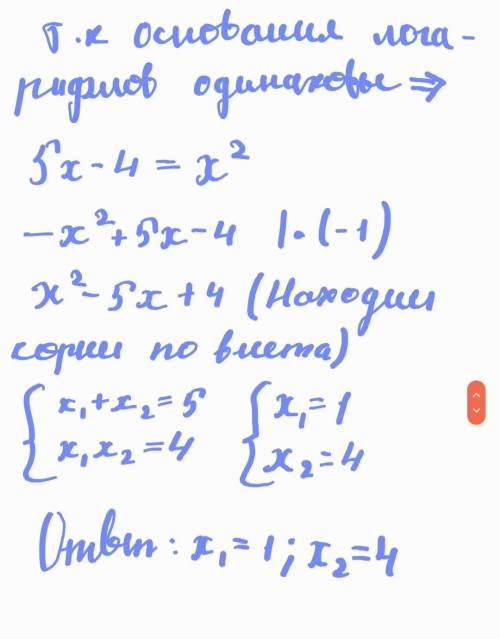 т.к основания лога-
рифмов одинаковы ⇒
5x - 4 = x²
-x² + 5x - 4 |·(-1)
x² - 5x + 4 (Находим
корни по виета)
{ x₁ + x₂ = 5 { x₁ = 1
{ x₁ x₂ = 4 { x₂ = 4
Ответ: x₁ = 1; x₂ = 4